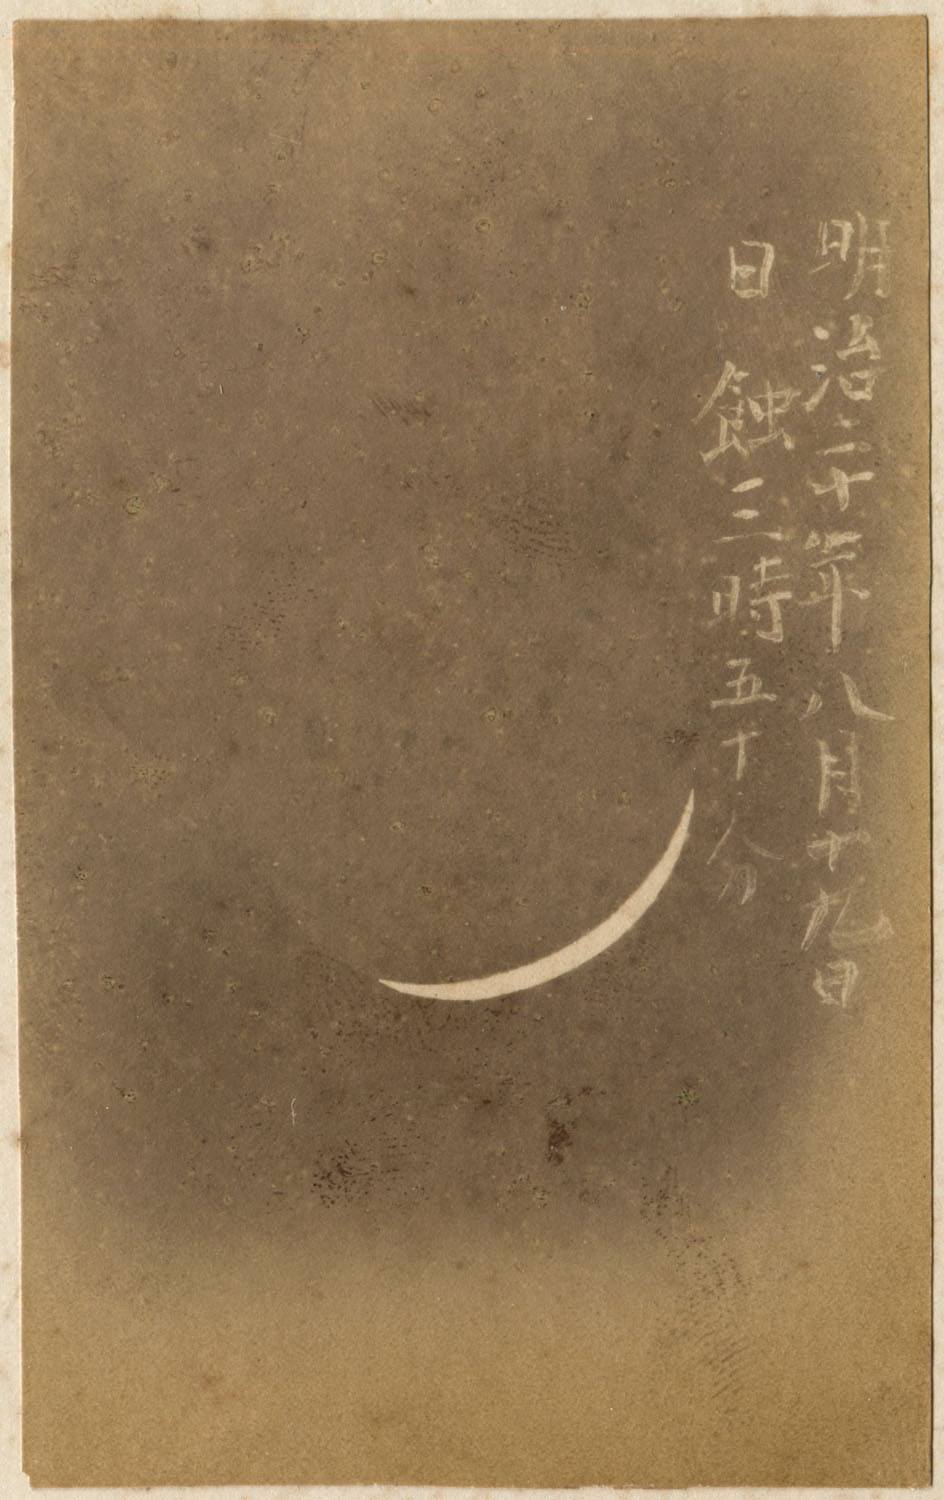 明治二十年八月十九日
日蝕三時五十分